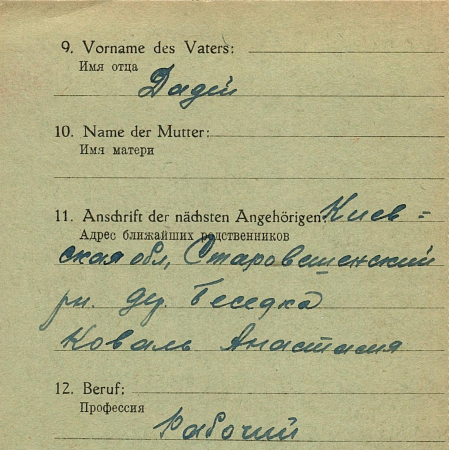 9. Vorname des Vaters:
Имя отца
Дадей
10. Name der Mutter:
Имя матери
11. Anschrift der nächsten Angehörigen: Киев-
Адрес ближайших родственников
ская обл, Старовешенский
рн. дер Беседка
Коваль Анастасия
12. Beruf:
Профессия
Рабочий